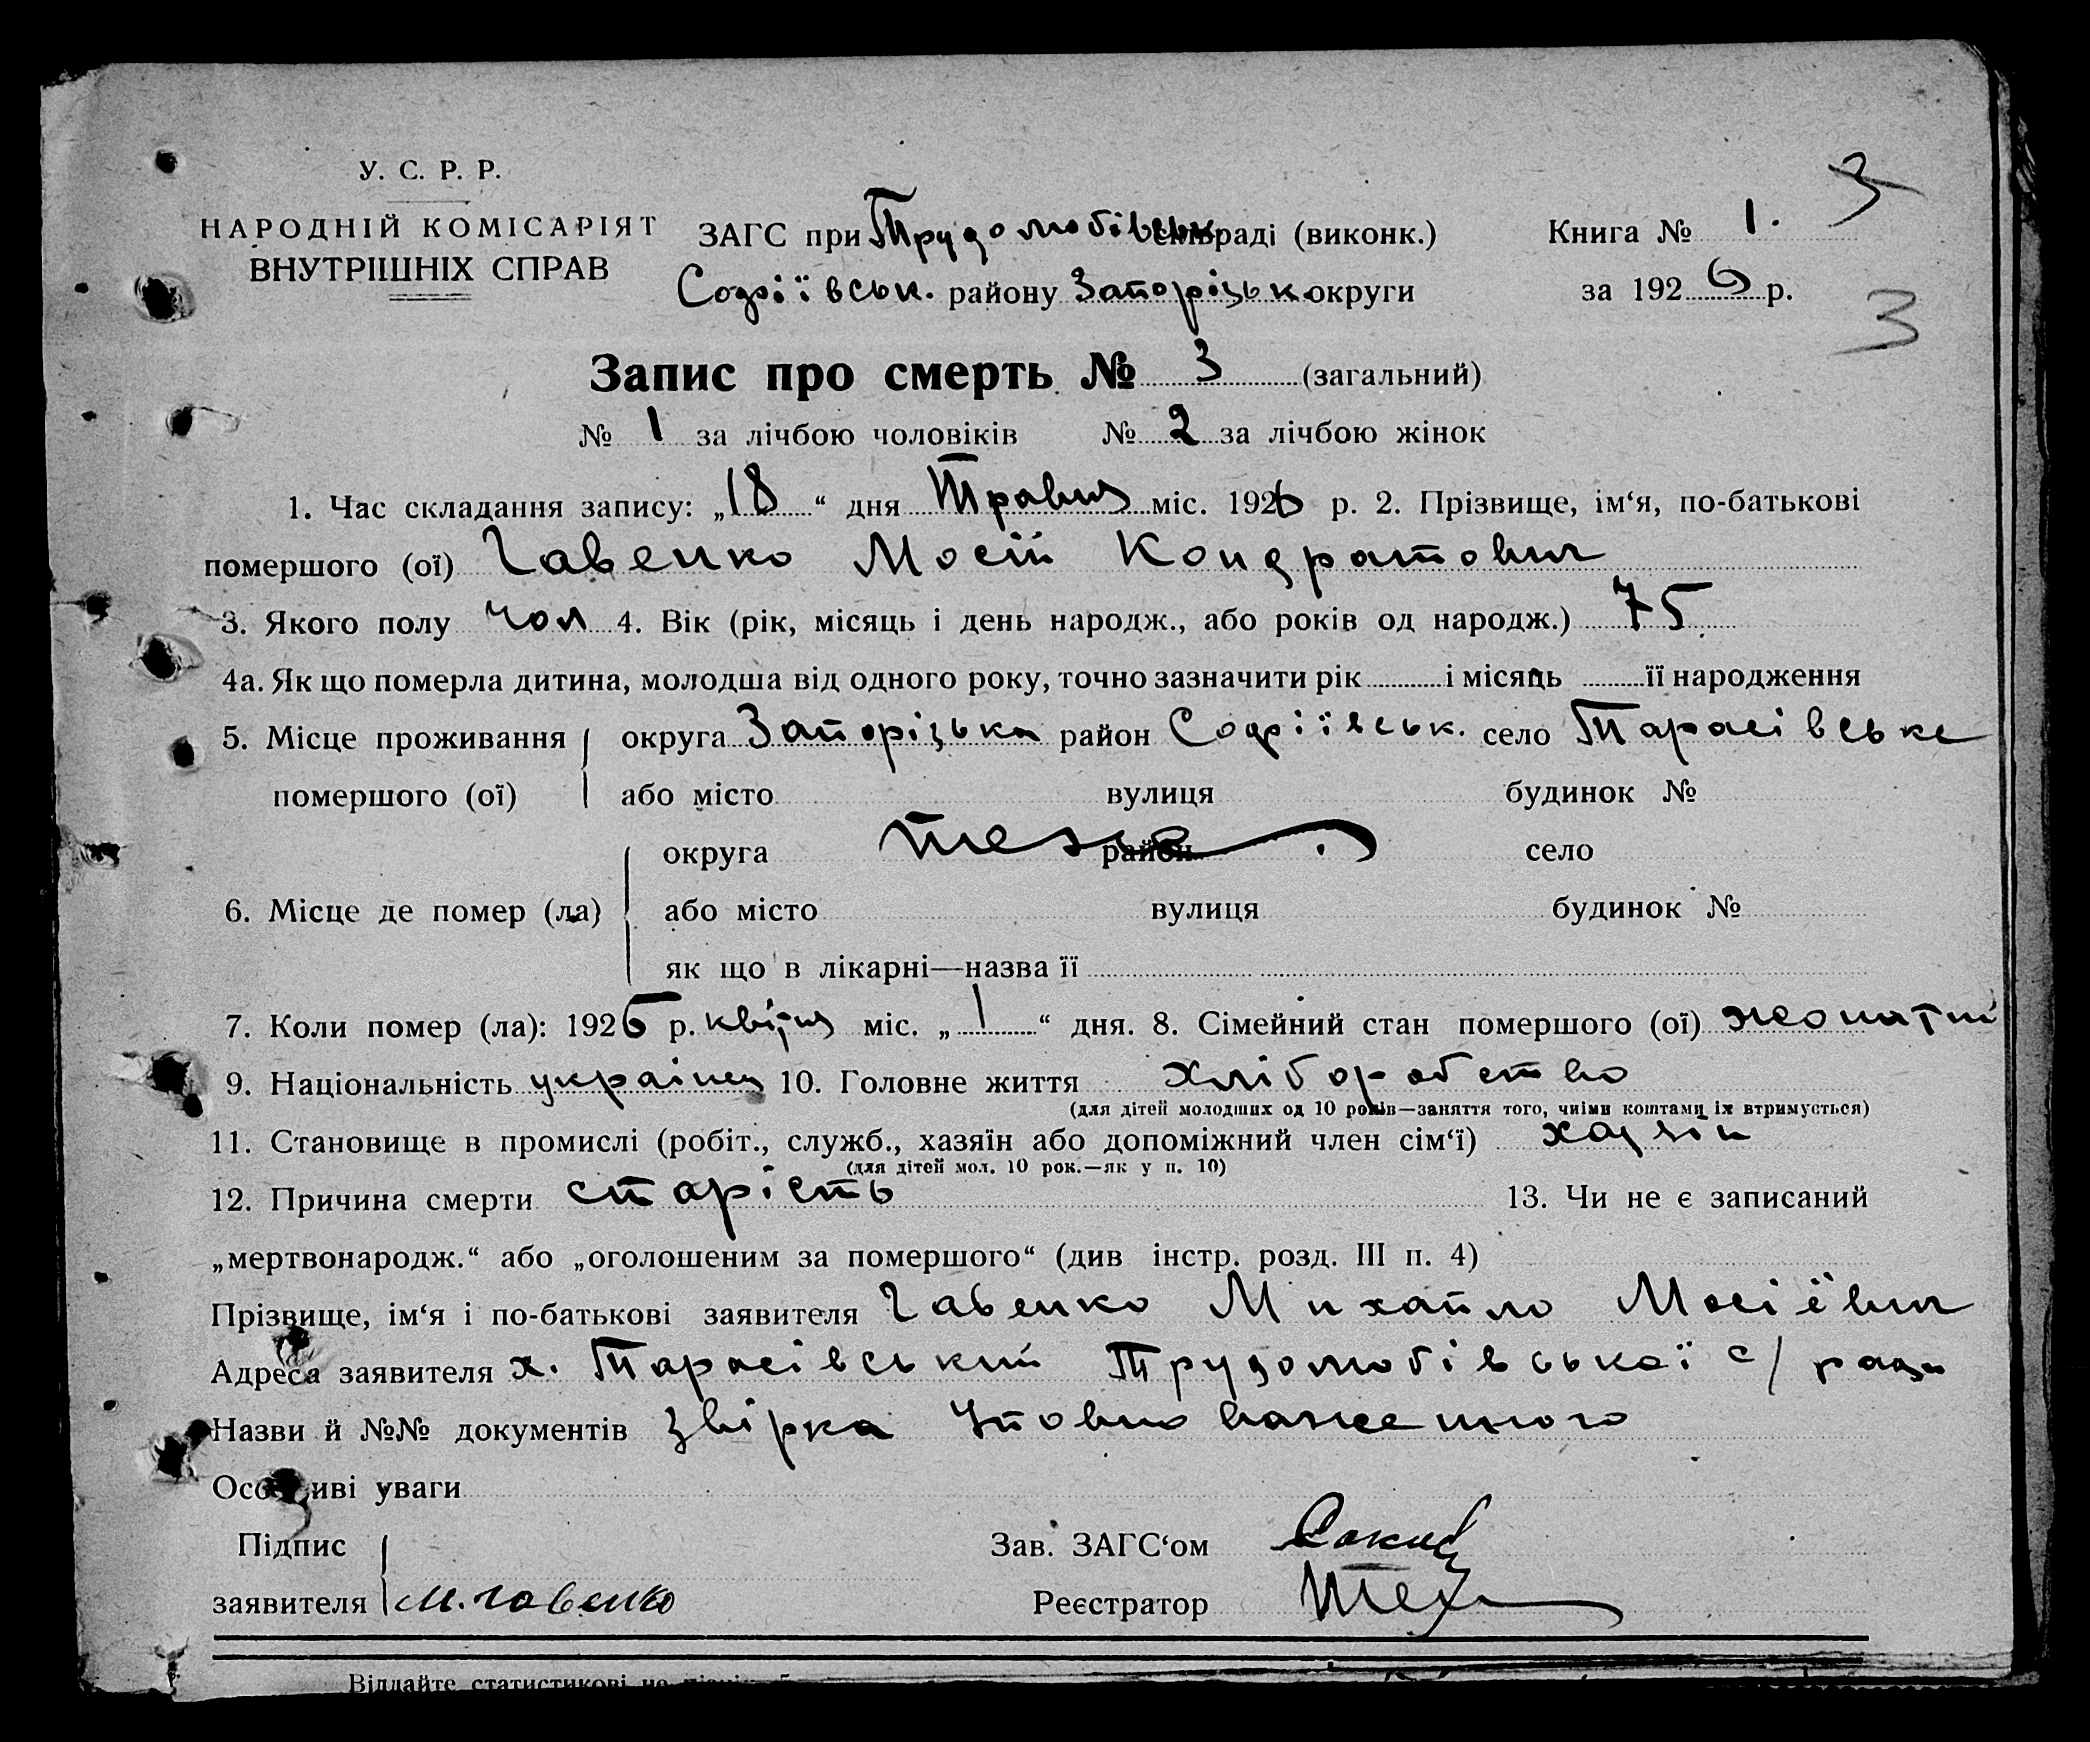 У. С. Р. Р.
НАРОДНІЙ КОМІСАРІЯТ
ВНУТРІШНІХ СПРАВ
ЗАГС при Трудолюбівськ. сільраді (виконк.)
Софіївськ. району Запорізьк. округи
Книга № 1. 3
за 1926 р.
3
Запис про смерть № 3 (загальний)
№ 1 за лічбою чоловіків № 2 за лічбою жінок
1. Час складання запису: „18“ дня Травня міс. 1926 р. 2. Прізвище, ім‘я, по-батькові
помершого (ої) Чавенко Мосій Кондратович
3. Якого полу чол 4. Вік (рік, місяць і день народж., або років од народж.) 75
4а. Як що померла дитина, молодша від одного року, точно зазначити рік і місяць її народження
5. Місце проживання округа Запорізька район Софіївськ. село Тарасівське
помершого (ої) або місто вулиця будинок №
округа теж район село
6. Місце де помер (ла) або місто вулиця будинок №
як що в лікарні—назва її
7. Коли помер (ла): 1926 р. квітня міс. „1“ дня. 8. Сімейний стан помершого (ої) жонатий
9. Національність українец 10. Головне життя хліборобство
(для дітей молодших од 10 років—заняття того, чиїми коштами їх втримується)
11. Становище в промислі (робіт., служб., хазяїн або допоміжний член сім‘ї) хазяїн
(для дітей мол. 10 рок.—як у п. 10)
12. Причина смерти старість 13. Чи не є записаний
„мертвонародж.“ або „оголошеним за помершого“ (див інстр. розд. III п. 4)
Прізвище, ім‘я і по-батькові заявителя Чавенко Михайло Мосієвич
Адреса заявителя х. Тарасівський Трудолюбівської с/ради
Назви й №№ документів звірка Уповноваженного
Особливі уваги
Підпис Зав. ЗАГС‘ом
заявителя М. Чавенко Реєстратор
Віддайте статистикові не пізніш